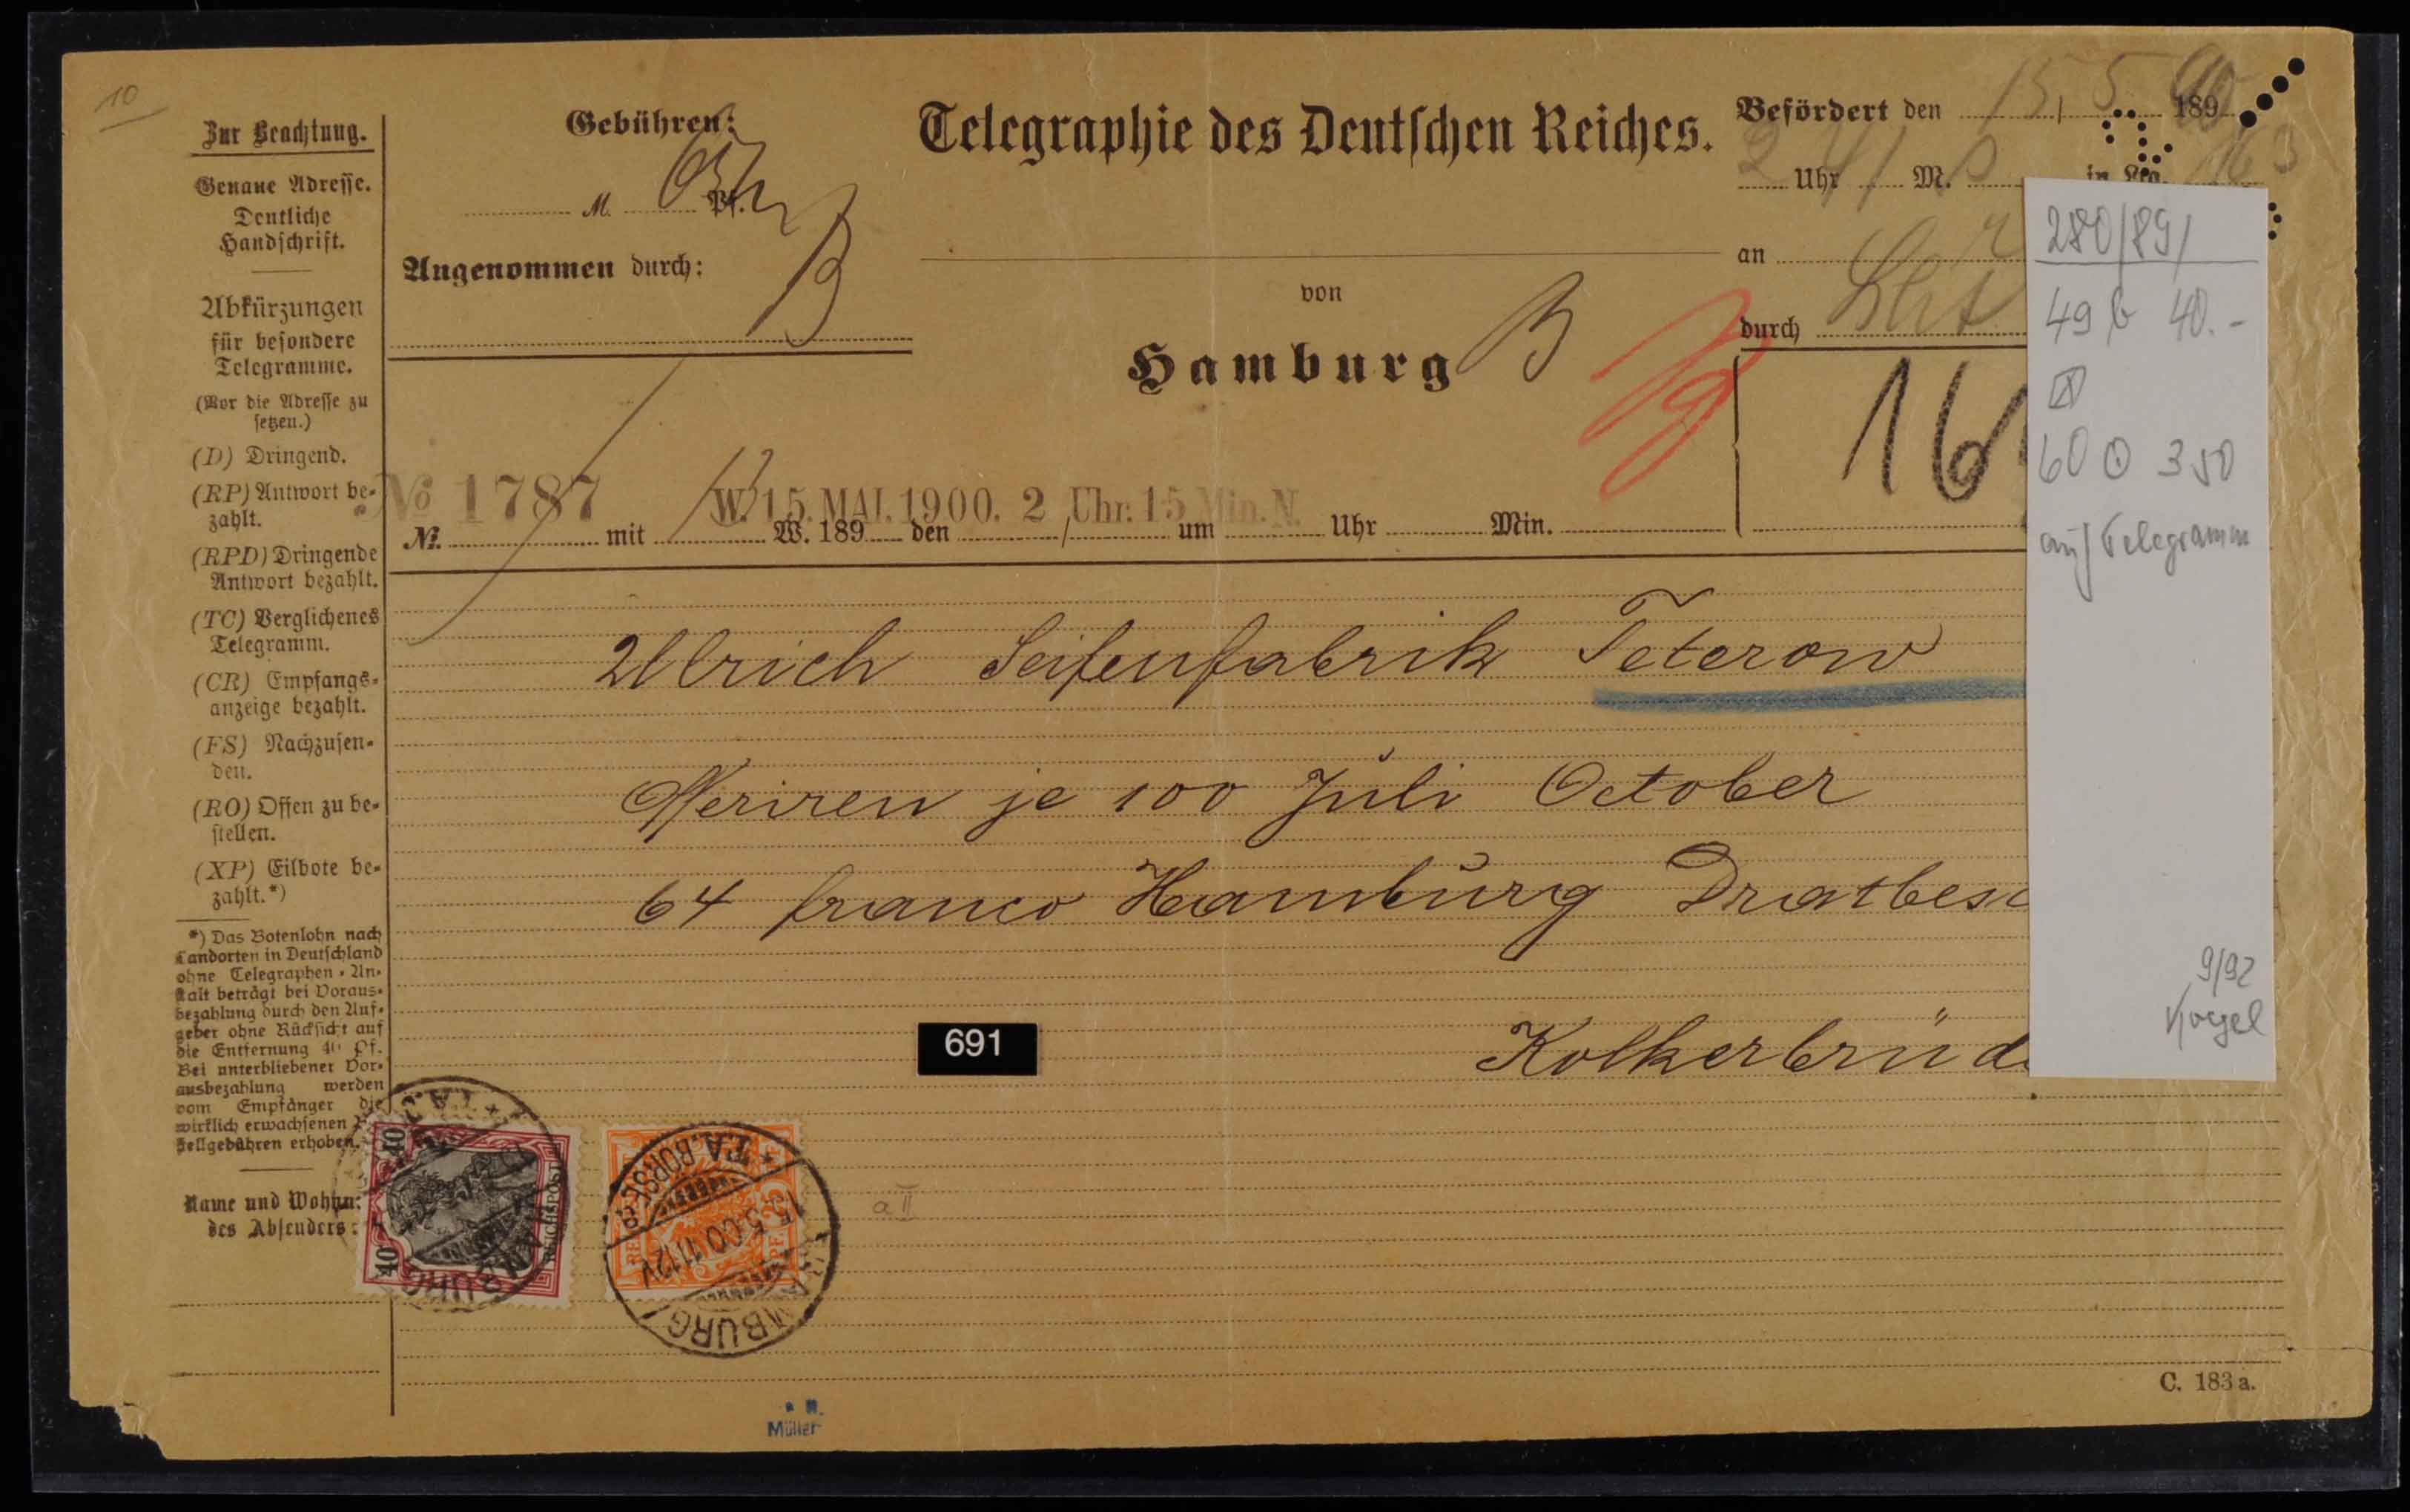 10
Zur Beachtung.
Genaue Adresse.
Deutliche
Handschrift.
Abkürzungen
für besondere
Telegramme.
(Vor die Adresse zu
setzen.)
(D) Dringend.
(RP) Antwort be-
zahlt.
(RPD) Dringende
Antwort bezahlt.
(TC) Verglichenes
Telegramm.
(CR) Empfangs-
anzeige bezahlt.
(FS) Nachzusen-
den.
(RO) Offen zu be-
stellen.
(XP) Eilbote be-
zahlt.*)
*) Das Botenlohn nach
Landorten in Deutschland
ohne Telegraphen-An-
stalt beträgt bei Voraus-
bezahlung durch den Auf-
geber ohne Rücksicht auf
die Entfernung 40 Pf.
Bei unterbliebener Vor-
ausbezahlung werden
vom Empfänger die
wirklich erwachsenen
stellgebühren erhoben.
Name und Wohn
des Absenders:
Gebühren:
M. Pf.
Angenommen durch:
B
Telegraphie des Deutschen Reiches.
von
Hamburg B
Befördert den 15/5 189
2 Uhr 41 M. in Ltg. 163
an
durch
16
No 1787 W. 15. MAI. 1900. 2 Uhr. 15 Min. N.
Nr. mit W. 189 den / um Uhr Min.
Ullrich Seifenfabrik Teterow
Offeriren je 100 Juli October
64 franco Hamburg Dratbesc
Kolkerbrüd
691
40
40
REICHSPOST
T.A. BÖRSE
15.5.00 11-12V
HAMBURG
a II
Müller
C. 183a.
280/89/
49 b 40.-
60 ⊙ 350
auf Telegramm
9/92
Vogel